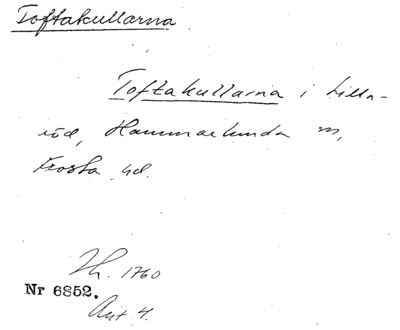 Toftakullarna
Toftakullarna i Lilla-
röd, Hammarlunda sn,
Frosta hd.
Th. 1760
Nr 6852.
Avt 4.